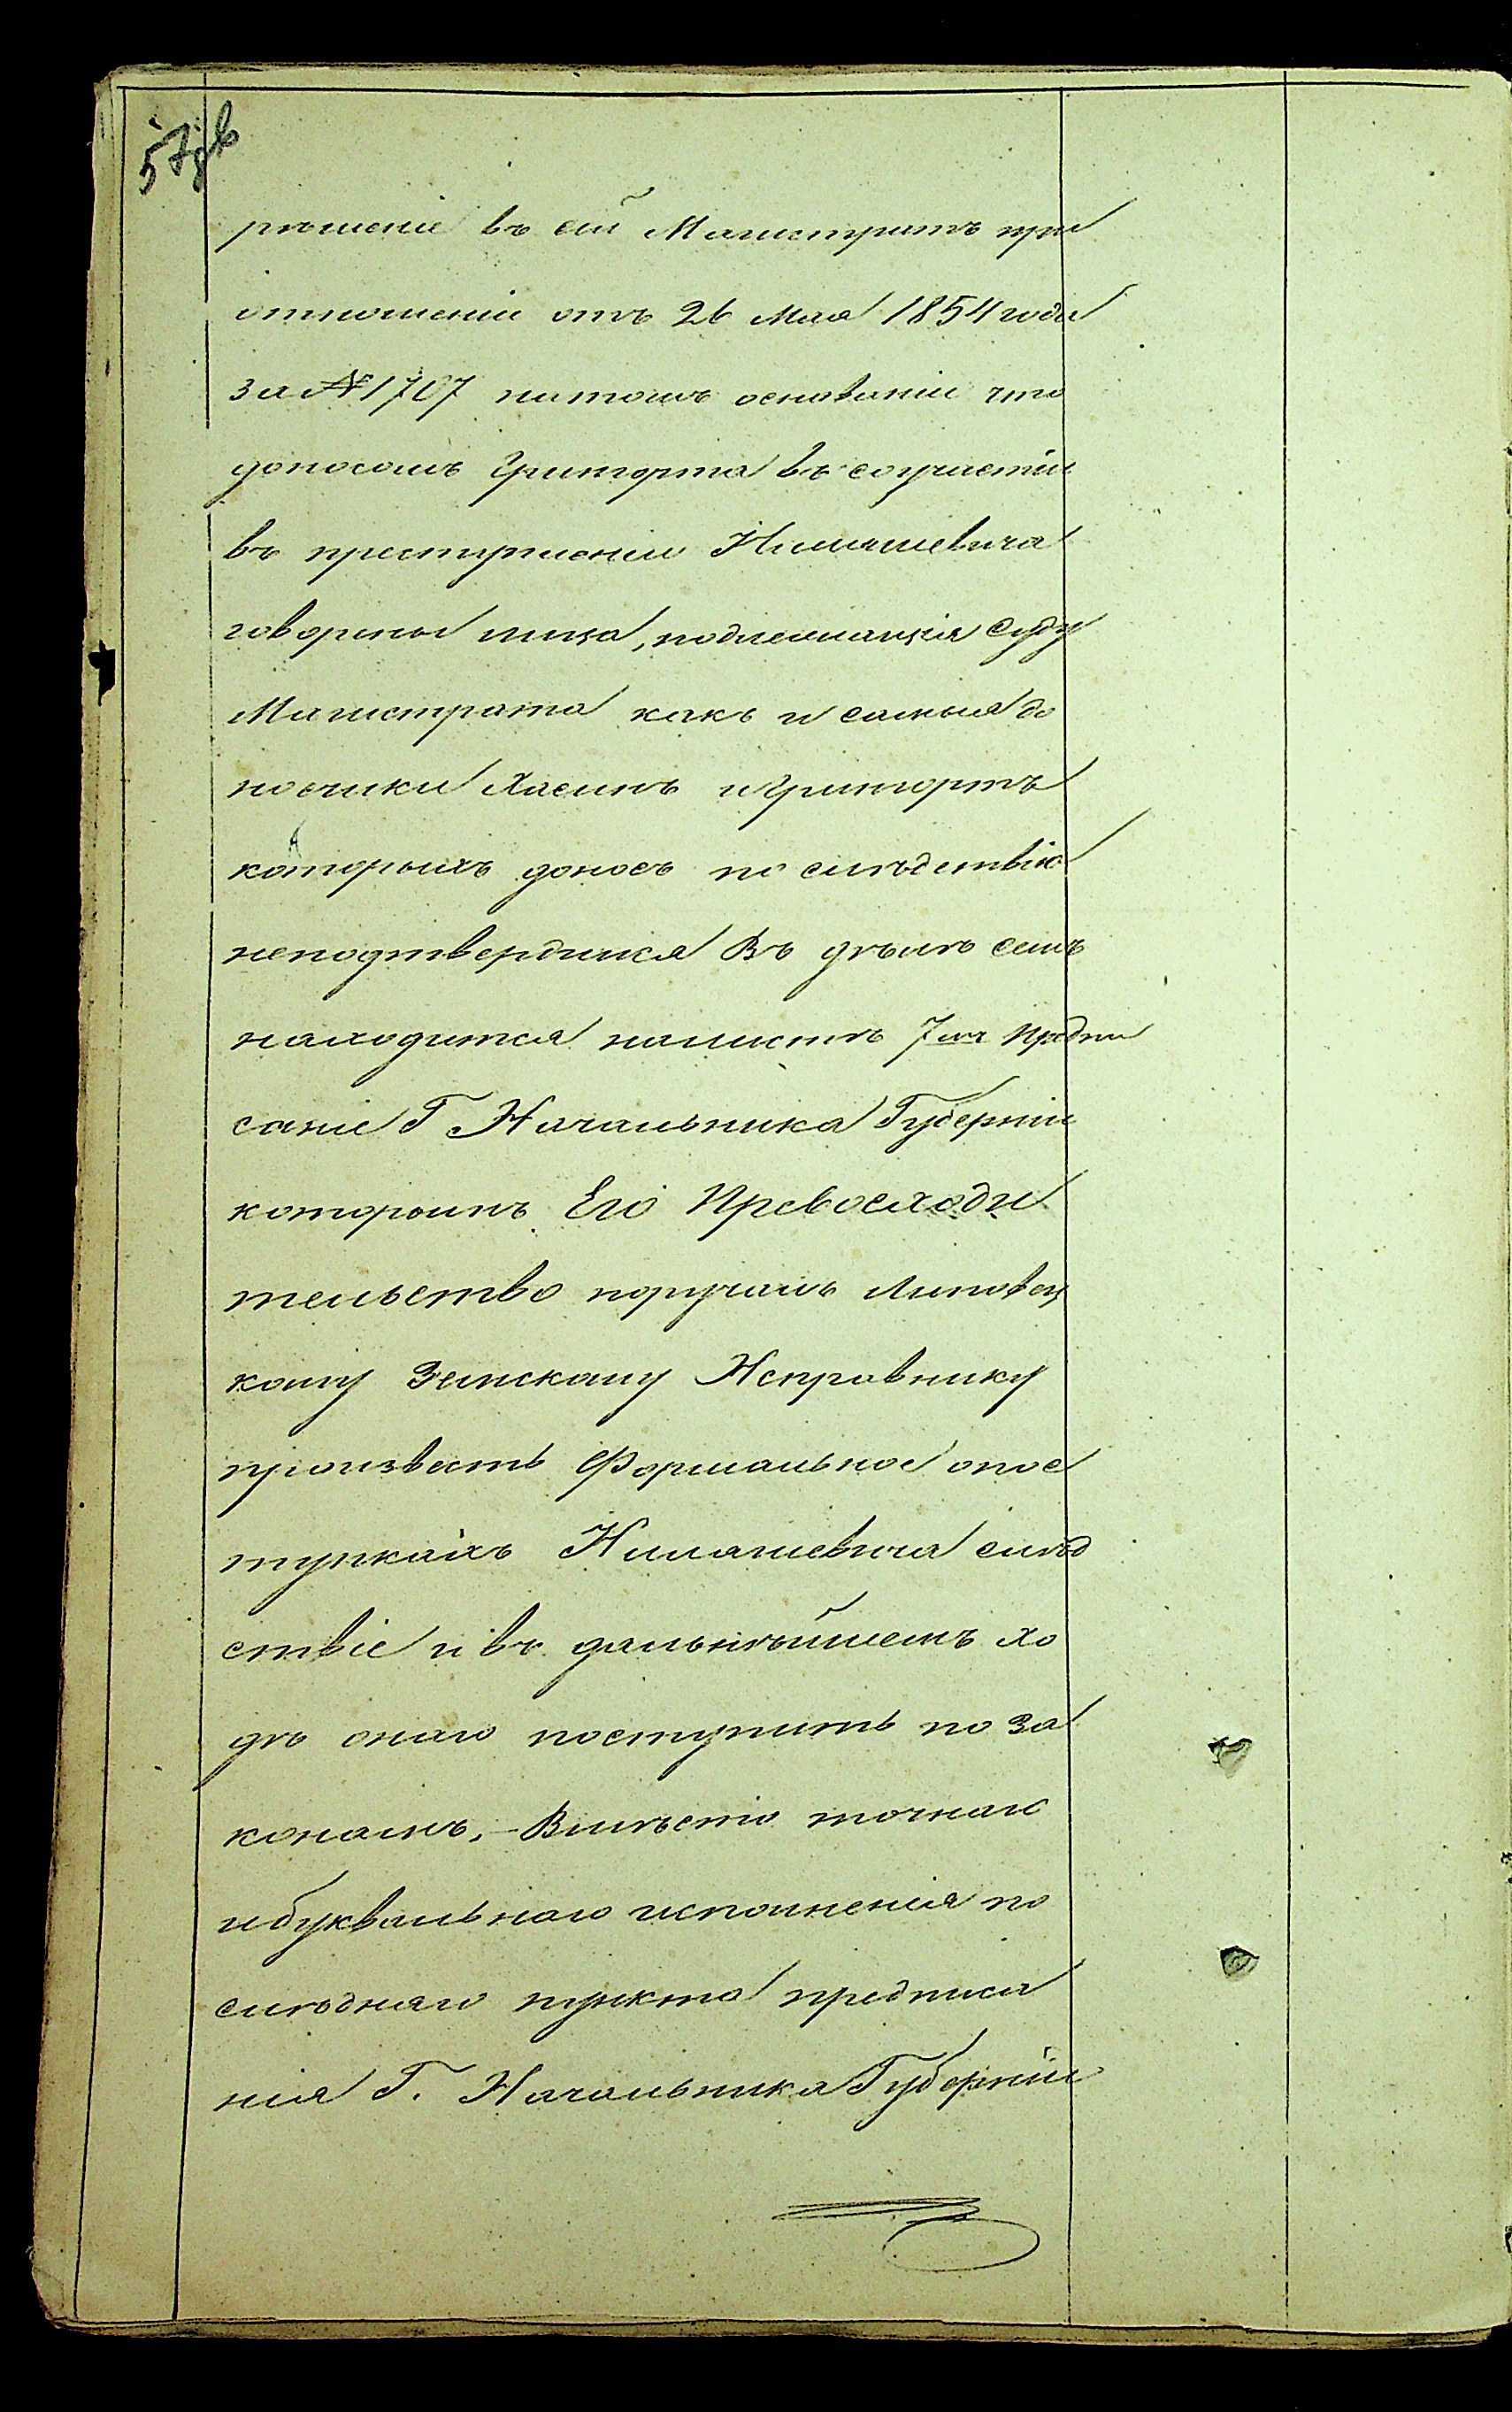 57об
рѣшеніе въ сей Магистратъ при
отношеніи отъ 26 Мая 1854 года
за № 1707 натомъ основаніи что
доносомъ Гриторта въ соучастіи
въ преступленіи Нимашевича
говорены лица, подлежащія Суду
Магистрата какъ и самыя до
носчики Хасинъ и Гриторть
которыхъ доносъ по слѣдствію
неподтвердился Въ дѣлѣ семъ
находится налистѣ 7мъ Предпи
саніе Г Начальника Губерніи
которымъ Его Превосходи
тельство поручалъ Липовец
кому Земскому Исправнику
произвесть Формальное опос
тупкахъ Нимашевича слѣд
ствіе и въ дальнѣйшемъ хо
дѣ онаго поступить по За
конамъ. – Вмѣсто точнаго
и буквальнаго исполненія по
слѣдняго пункта предписа
нія Г. Начальника Губерніи